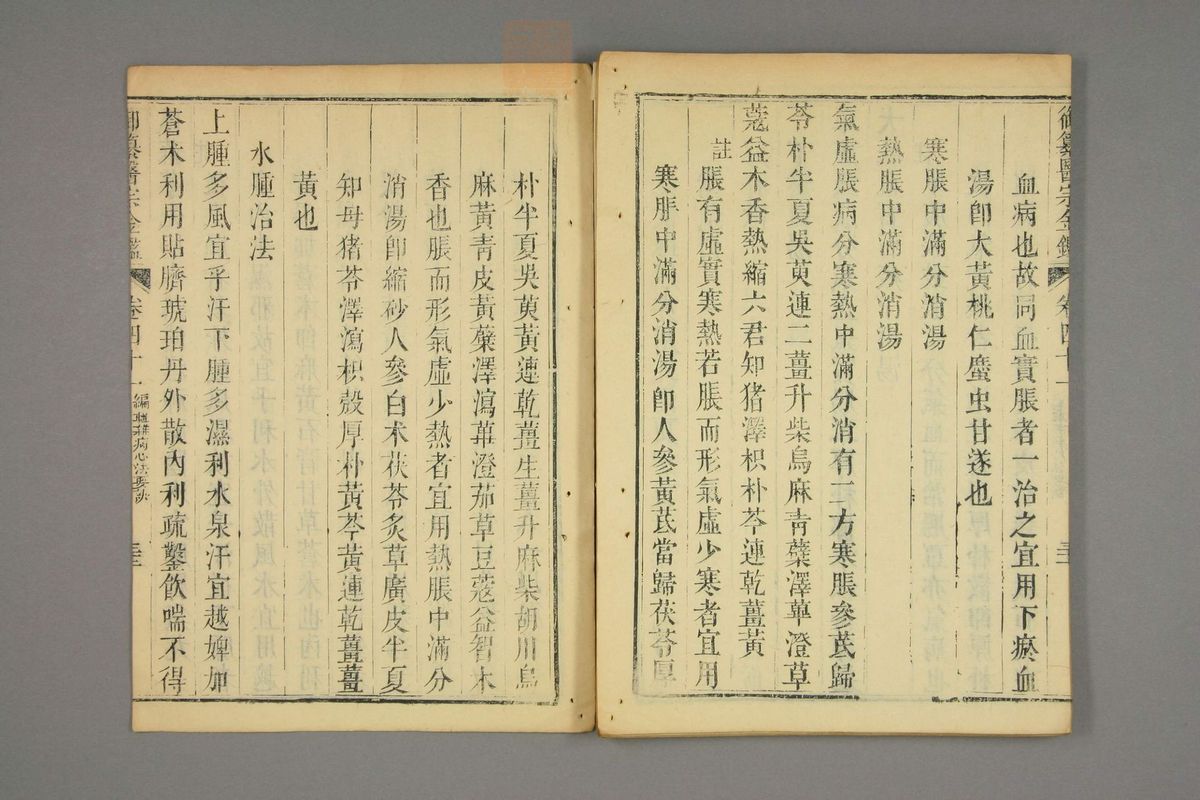 御纂醫宗金鑑 卷四十一
血病也故同血實脹者一治之宜用下瘀血
湯卽大黃桃仁䗪虫甘遂也
寒脹中滿分消湯
熱脹中滿分消湯
氣虛脹病分寒熱中滿分消有二方寒脹參芪歸
苓朴半夏吳萸連二薑升柴烏麻青蘗澤蓽澄草
蔻益木香熱縮六君知猪澤枳朴芩連乾薑黃
註脹有虛實寒熱若脹而形氣虛少寒者宜用
寒脹中滿分消湯卽人參黃芪當歸茯苓厚
朴半夏吳萸黃連乾薑生薑升麻柴胡川烏
麻黃青皮黃蘗澤瀉蓽澄茄草豆蔻益智木
香也脹而形氣虛少熱者宜用熱脹中滿分
消湯卽縮砂人參白朮茯苓炙草廣皮半夏
知母猪苓澤瀉枳殼厚朴黃芩黃連乾薑薑
黃也
水腫治法
上腫多風宜乎汗下腫多濕利水泉汗宜越婢加
蒼朮利用貼臍琥珀丹外散內利疏鑿飲喘不得
御纂醫宗金鑑 卷四十一 編輯雜病心法要訣